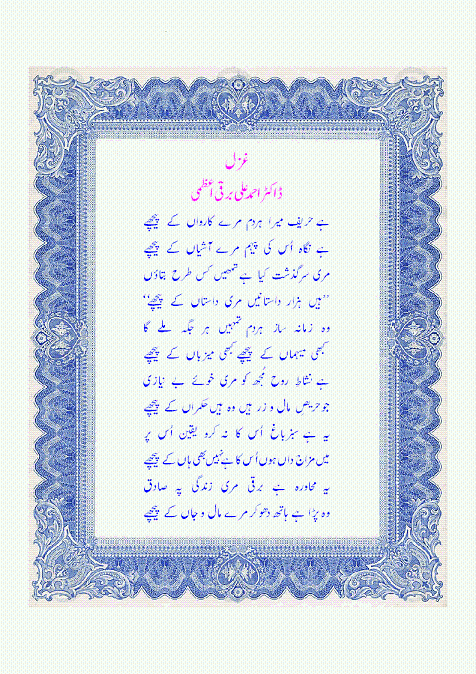 غزل
ڈاکٹر احمد علی برقی اعظمی
ہے حریف میرا ہردم مرے کارواں کے پیچھے
ہے نگاہ اُس کی پیہم مرے آشیاں کے پیچھے
مری سرگذشت کیا ہے تمھیں کس طرح بتاؤں
’’ہیں ہزار داستانیں مری داستاں کے پیچھے‘‘
وہ زمانہ ساز ہردم تمہیں ہر جگہ ملے گا
کبھی میہماں کے پیچھے کبھی میزباں کے پیچھے
ہے نشاطِ روح مُجھ کو مری خوئے بے نیازی
جو حریص مال و زر ہیں وہ ہیں حکمراں کے پیچھے
یہ ہے سبز باغ اُس کا نہ کرو یقین اُس پر
میں مزاج داں ہوں اُس کا ہے نہیں بھی ہاں کے پیچھے
یہ محاورہ ہے برقی مری زندگی پہ صادق
وہ پڑا ہے ہاتھ دھو کر مرے مال و جاں کے پیچھے